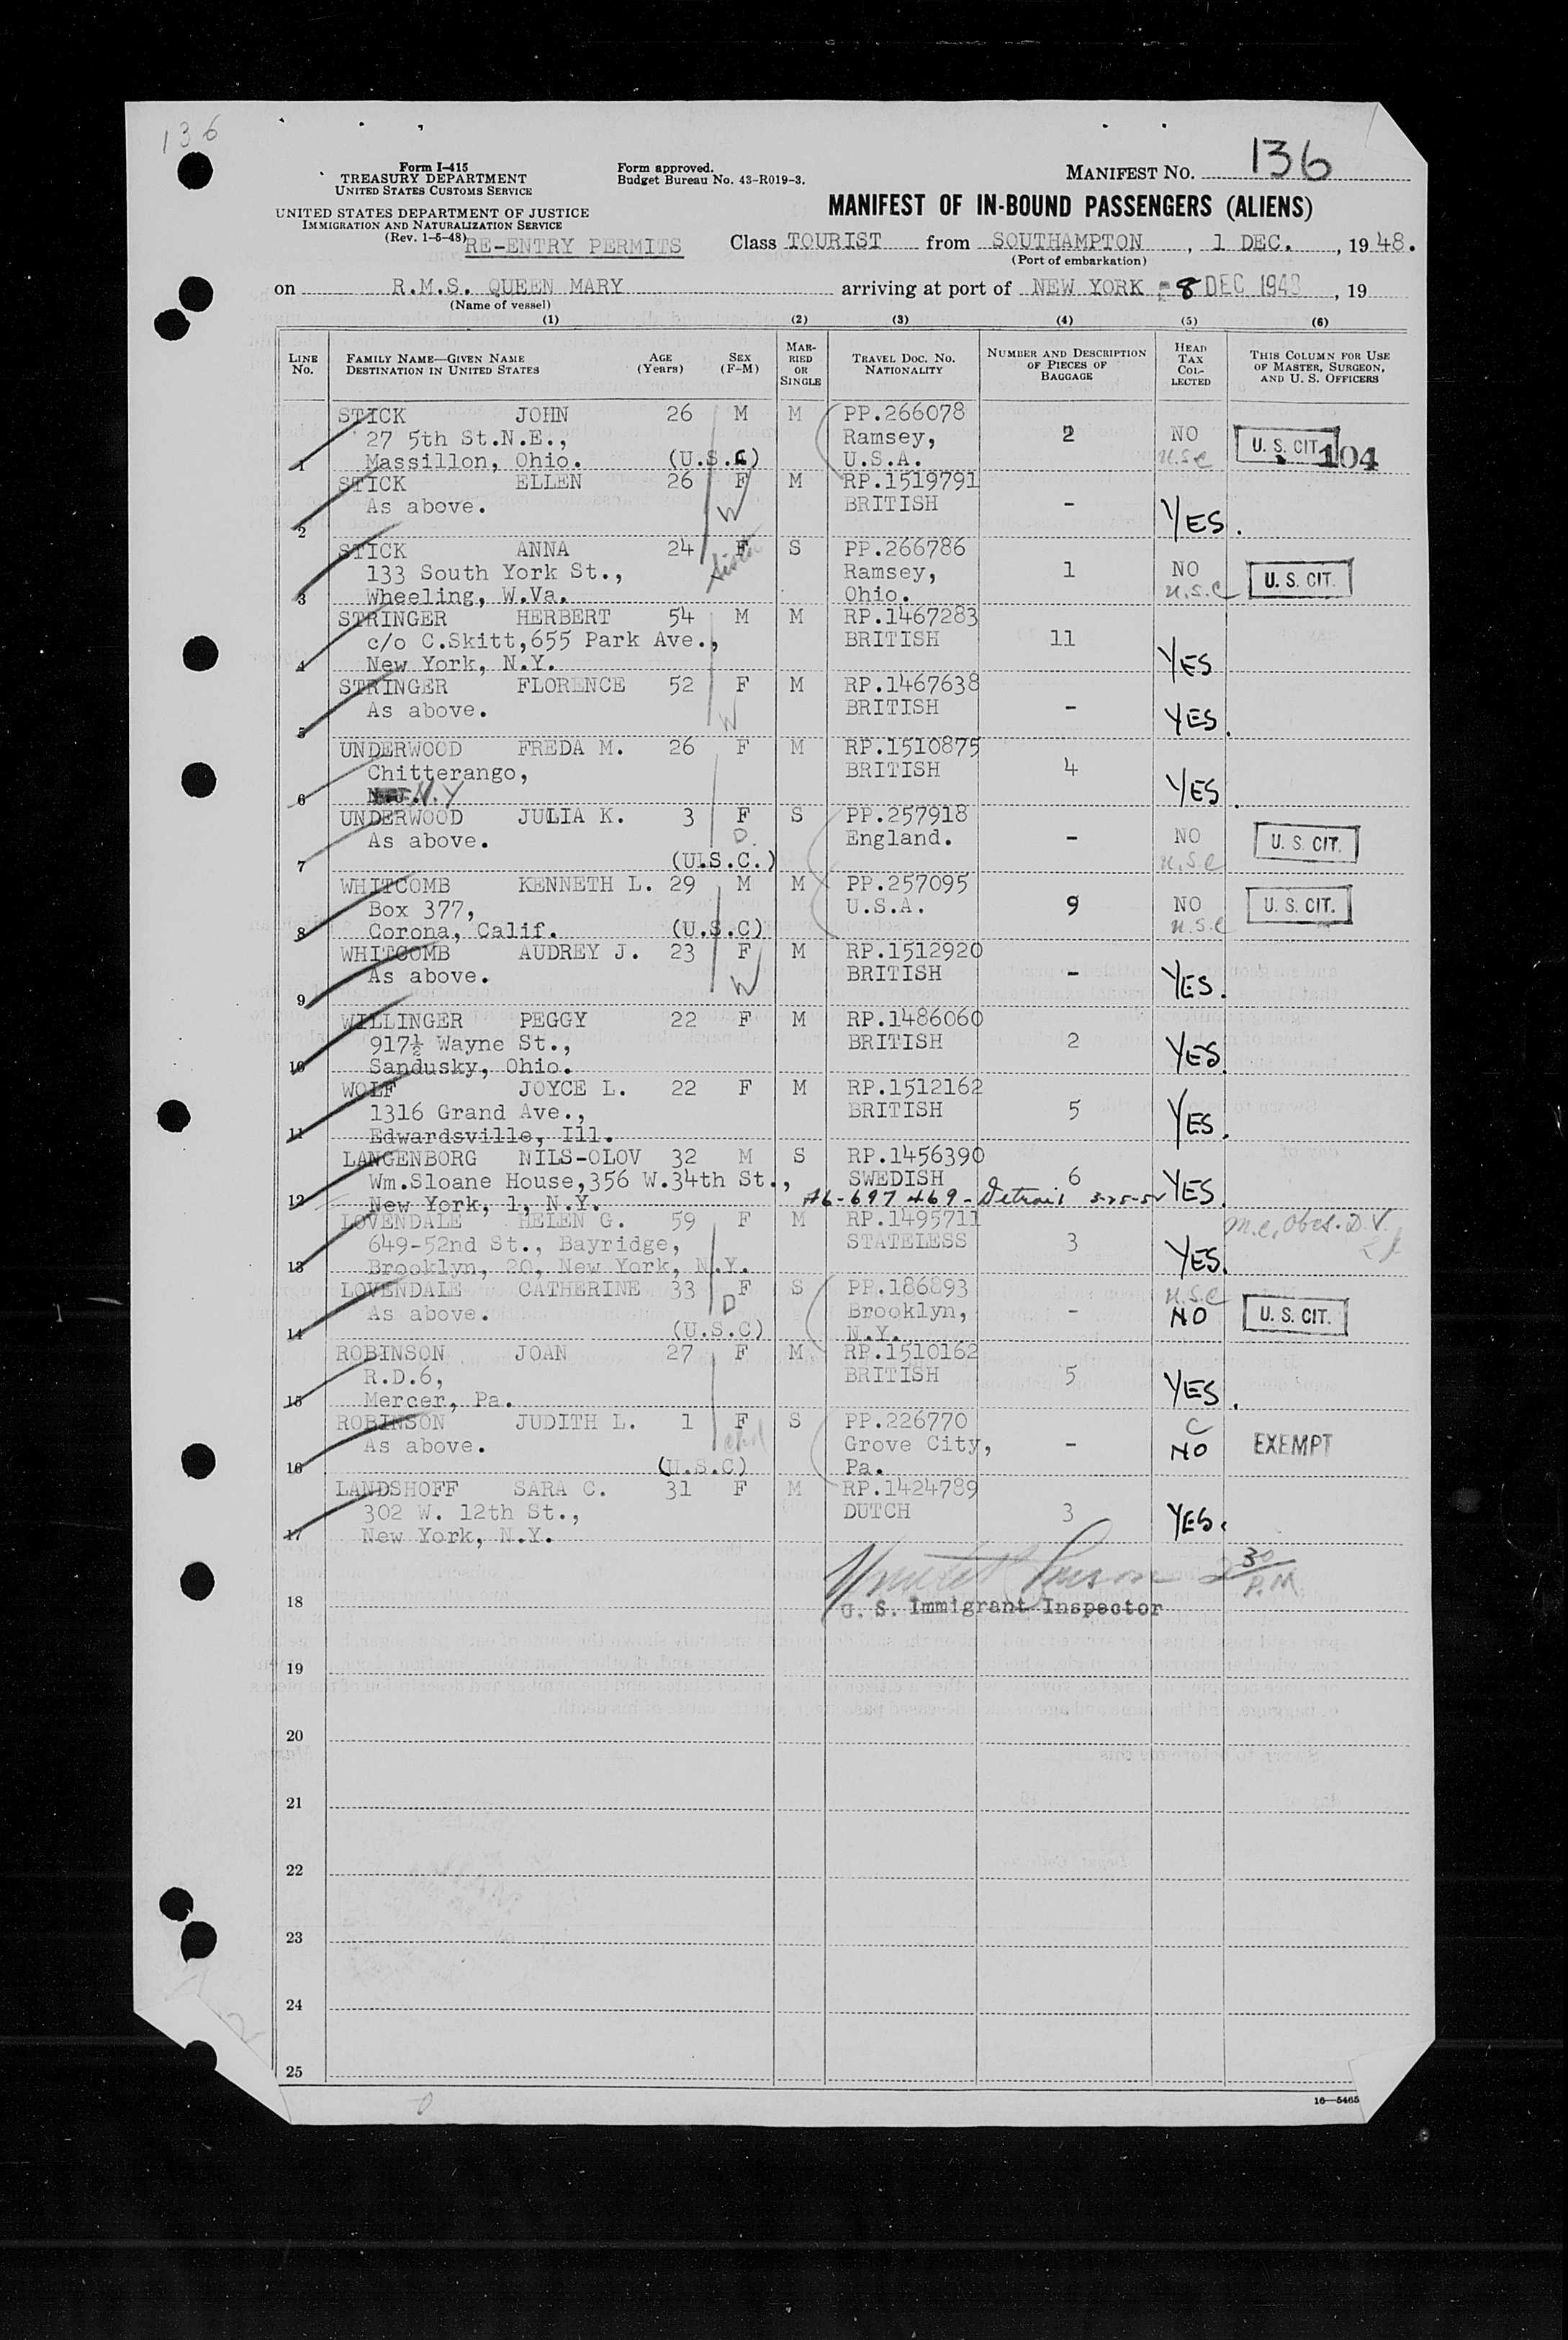 136
Form I-415
TREASURY DEPARTMENT
UNITED STATES CUSTOMS SERVICE
Form approved.
Budget Bureau No. 43-R019-3.
MANIFEST NO. 136
UNITED STATES DEPARTMENT OF JUSTICE
IMMIGRATION AND NATURALIZATION SERVICE
(Rev. 1-5-48)
RE-ENTRY PERMITS
MANIFEST OF IN-BOUND PASSENGERS (ALIENS)
Class TOURIST from SOUTHAMPTON, 1 DEC., 1948.
(Port of embarkation)
on R.M.S. QUEEN MARY arriving at port of NEW YORK 8 DEC 1948, 19
(Name of vessel)
(1) (2) (3) (4) (5) (6)
LINE NO. FAMILY NAME—GIVEN NAME DESTINATION IN UNITED STATES AGE (Years) SEX (F-M) MARRIED OR SINGLE TRAVEL DOC. NO. NATIONALITY NUMBER AND DESCRIPTION OF PIECES OF BAGGAGE HEAD TAX COLLECTED THIS COLUMN FOR USE OF MASTER, SURGEON, AND U. S. OFFICERS
STICK JOHN 26 M M PP.266078
27 5th St.N.E., Ramsey, 2 NO U. S. CIT. 104
1 Massillon, Ohio. (U.S.C) U.S.A. U.S.C
STICK ELLEN 26 F M RP.1519791
As above. BRITISH - YES.
2 W
STICK ANNA 24 F S PP.266786
133 South York St., Sister Ramsey, 1 NO U. S. CIT.
3 Wheeling, W.Va. Ohio. U.S.C
STRINGER HERBERT 54 M M RP.1467283
c/o C.Skitt,655 Park Ave., BRITISH 11
4 New York, N.Y. YES
STRINGER FLORENCE 52 F M RP.1467638
As above. W BRITISH - YES.
5
UNDERWOOD FREDA M. 26 F M RP.1510875
Chitterango, BRITISH 4
6 N.Y YES.
UNDERWOOD JULIA K. 3 F S PP.257918
As above. D. England. - NO U. S. CIT.
7 (U.S.C.) U.S.C
WHITCOMB KENNETH L. 29 M M PP.257095
Box 377, U.S.A. 9 NO U. S. CIT.
8 Corona, Calif. (U.S.C) U.S.C
WHITCOMB AUDREY J. 23 F M RP.1512920
As above. W BRITISH - YES.
9
WILLINGER PEGGY 22 F M RP.1486060
917½ Wayne St., BRITISH 2
10 Sandusky, Ohio. YES.
WOLF JOYCE L. 22 F M RP.1512162
1316 Grand Ave., BRITISH 5 YES.
11 Edwardsville, Ill.
LANGENBORG NILS-OLOV 32 M S RP.1456390
Wm.Sloane House,356 W.34th St., SWEDISH 6 YES.
12 New York, 1, N.Y. A6-697469-Detroit 3-25-52
LOVENDALE HELEN G. 59 F M RP.1495711 M.C. Obes. D.V.
649-52nd St., Bayridge, STATELESS 3
13 Brooklyn, 20, New York, N.Y. YES.
LOVENDALE CATHERINE 33 F S PP.186893 U.S.C
As above. D Brooklyn, - NO U. S. CIT.
14 (U.S.C) N.Y.
ROBINSON JOAN 27 F M RP.1510162
R.D.6, BRITISH 5
15 Mercer, Pa. YES.
ROBINSON JUDITH L. 1 F S PP.226770 C
As above. chd Grove City, - NO EXEMPT
16 (U.S.C) Pa.
LANDSHOFF SARA C. 31 F M RP.1424789
302 W. 12th St., DUTCH 3 YES.
17 New York, N.Y.
2 30 P.M.
18 U. S. Immigrant Inspector
19
20
21
22
23
24
25
16—5465